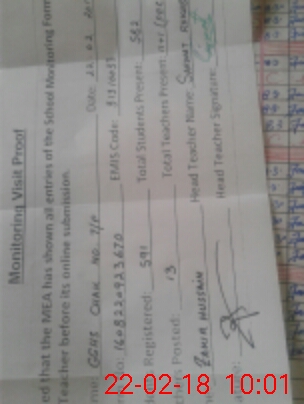 Monitoring Visit Proof
ed that the MEA has shown all entries of the School Monitoring Form
Teacher before its online submission.
GGHS CHAK NO 7/P Date: 22.02.201
No: 16082209336 70 EMIS Code:
Registered: 591 Total Students Present: 582
Posted: 13 Total Teachers Present
ZAMIR HUSSAIN Head Teacher Name:
Head Teacher Signature:
22-02-18 10:01